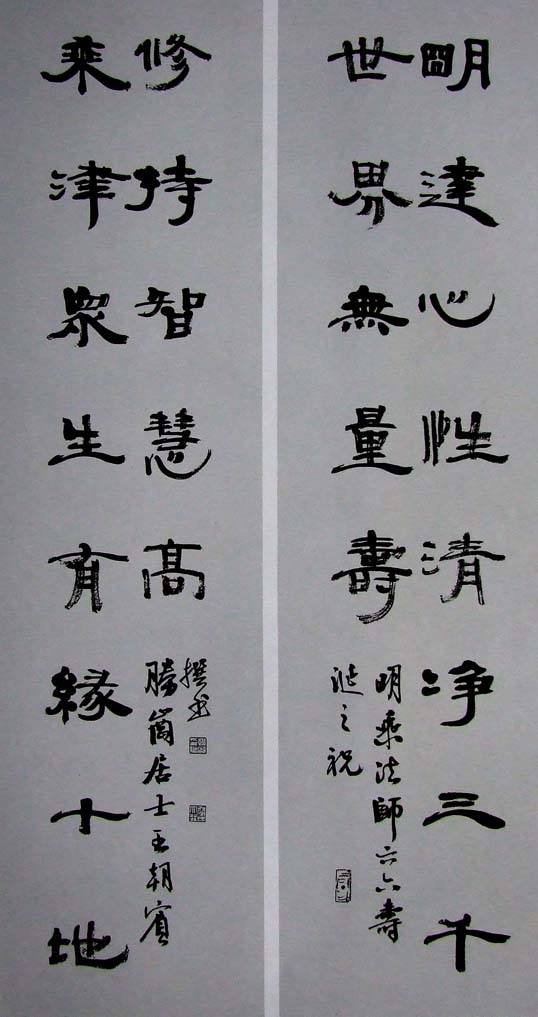 明達心性清净三千
世界無量壽
明乘法師六六壽
誕之祝
乘津眾生有緣十地
修持智慧高
崮居士王朝賓
撰书